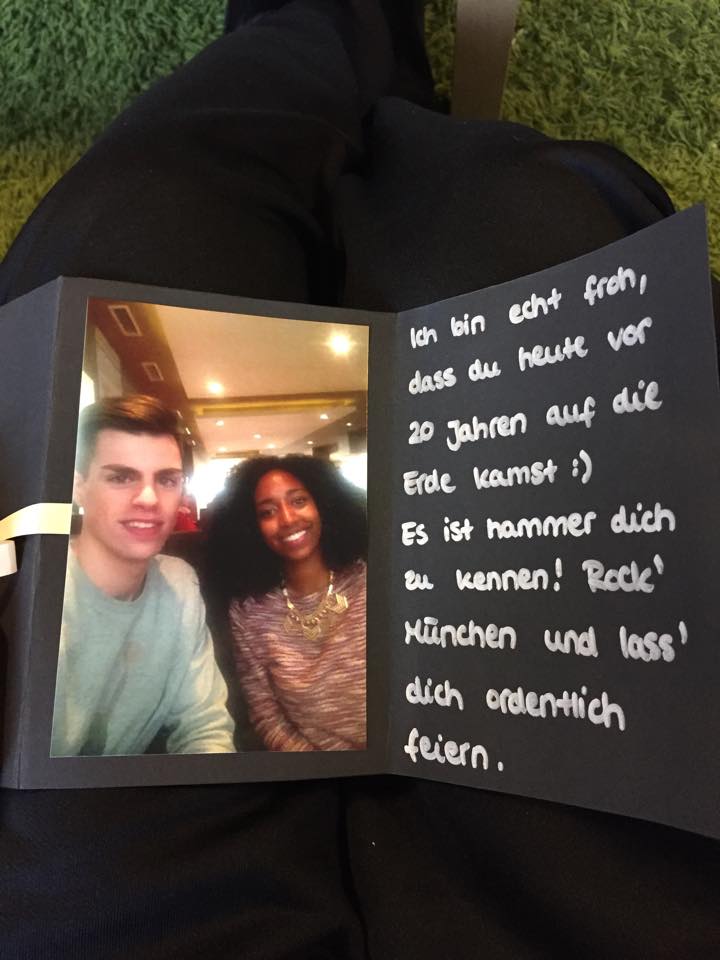 Ich bin echt froh,
dass du heute vor
20 Jahren auf die
Erde kamst :)
Es ist hammer dich
zu kennen! Rock'
München und lass'
dich ordentlich
feiern.